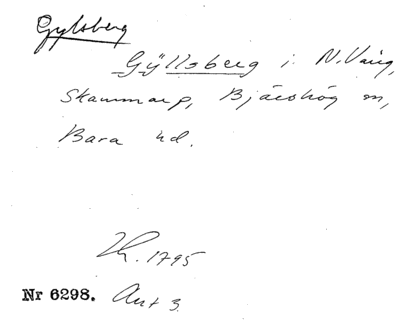 Gylsberg
Gÿllsberg i N. Vång,
Skammarp, Bjäeshög m,
Bara hd.
Kr. 1795
Nr 6298. Ant 3.